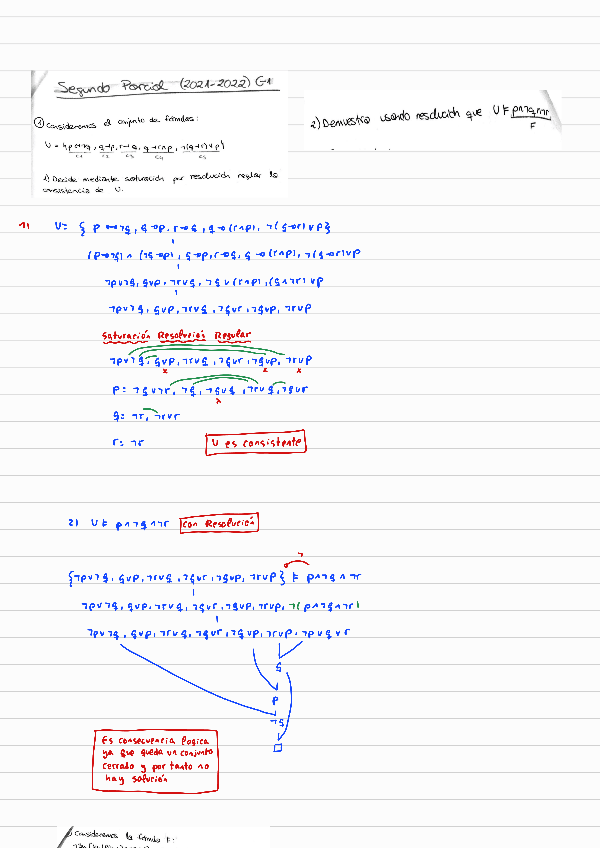 Segundo Parcial (2021-2022) G1
① Consideremos el conjunto de fórmulas:
U = {p↔¬q, q→p, r→q, q→r∧p, ¬(q∨r)∨p}
1) Decide mediante saturación por resolución regular la
consistencia de U.
2) Demuestra usando resolución que U ⊨ p∧¬q∧¬r
F
1) U= { p ↔ ¬q, q→p, r→q, q→(r∧p), ¬(q∨r)∨p}
(p→¬q) ∧ (¬q→p), q→p, r→q, q→(r∧p), ¬(q∨r)∨p
¬p∨¬q, q∨p, ¬r∨q, ¬q∨(r∧p), (¬q∧¬r)∨p
¬p∨¬q, q∨p, ¬r∨q, ¬q∨r, ¬q∨p, ¬r∨p
Saturación Resolución Regular
¬p∨¬q, q∨p, ¬r∨q, ¬q∨r, ¬q∨p, ¬r∨p
x x x
p: ¬q∨¬r, ¬q, ¬q∨q, ¬r∨q, ¬q∨r
x
q: ¬r, ¬r∨r
r: ¬r
U es consistente
2) U ⊨ p∧¬q∧¬r con Resolución
¬
{¬p∨¬q, q∨p, ¬r∨q, ¬q∨r, ¬q∨p, ¬r∨p} ⊨ p∧¬q∧¬r
¬p∨¬q, q∨p, ¬r∨q, ¬q∨r, ¬q∨p, ¬r∨p, ¬(p∧¬q∧¬r)
¬p∨¬q, q∨p, ¬r∨q, ¬q∨r, ¬q∨p, ¬r∨p, ¬p∨q∨r
q
p
¬q
□
Es consecuencia logica
ya que queda un conjunto
cerrado y por tanto no
hay solución
) Consideremos la fórmula F: